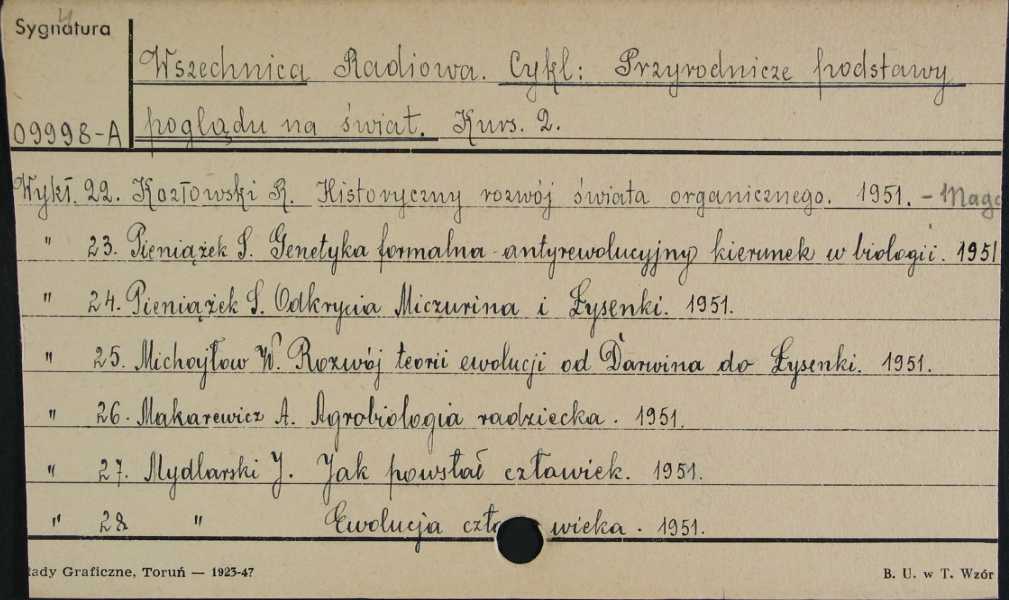 4
Sygnatura
Wszechnica Radiowa. Cykl: Przyrodnicze podstawy
09998-A poglądu na świat. Kurs. 2.
Wykł. 22. Kozłowski R. Historyczny rozwój świata organicznego. 1951. - Mago
" 23. Pieniążek S. Genetyka formalna - antyrewolucyjny kierunek w biologii. 1951
" 24. Pieniążek S. Odkrycia Miczurina i Łysenki. 1951.
" 25. Michajłow W. Rozwój teorii ewolucji od Darwina do Łysenki. 1951.
" 26. Makarewicz A. Agrobiologia radziecka. 1951.
" 27. Mydlarski J. Jak powstał człowiek. 1951.
" 28 " Ewolucja czło wieka. 1951.
łady Graficzne, Toruń — 1923-47 B. U. w T. Wzór